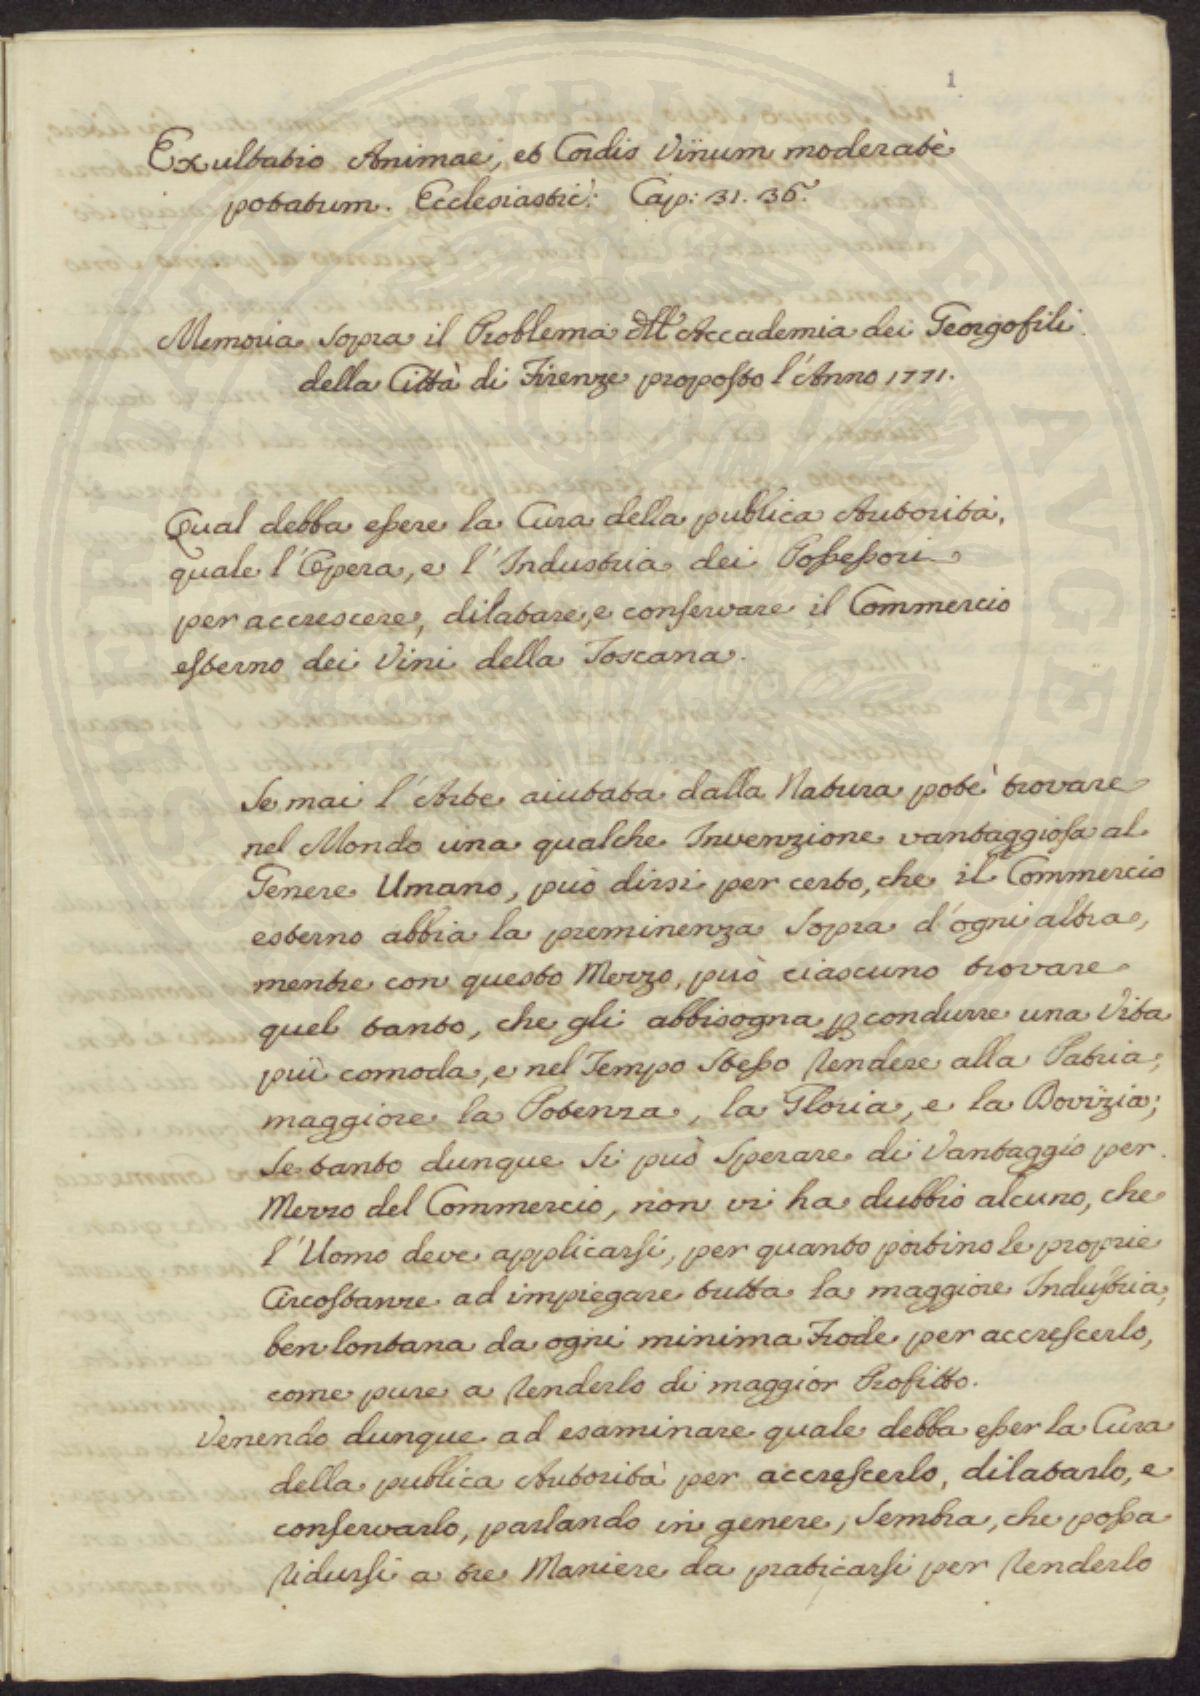 1
Exultatio Animae, et Cordis Vinum moderatè
potatum. Ecclesiastic: Cap: 31. 36.
Memoria sopra il Problema dell'Accademia dei Georgofili
della Città di Firenze proposto l'Anno 1771.
Qual debba essere la Cura della publica Autorità,
quale l'Opera, e l'Industria dei Possessori
per accrescere, dilatare, e conservare il Commercio
esterno dei Vini della Toscana.
Se mai l'Arte aiutata dalla Natura potè trovare
nel Mondo una qualche Invenzione vantaggiosa al
Genere Umano, può dirsi per certo, che il Commercio
esterno abbia la preminenza sopra d'ogni altra,
mentre con questo Mezzo, può ciascuno trovare
quel tanto, che gli abbisogna p condurre una Vita
più comoda, e nel Tempo stesso rendere alla Patria,
maggiore la Potenza, la Gloria, e la Dovizia;
se tanto dunque si può sperare di Vantaggio per
Mezzo del Commercio, non vi ha dubbio alcuno, che
l'Uomo deve applicarsi, per quanto portino le proprie
Circostanze ad impiegare tutta la maggiore Industria,
ben lontana da ogni minima Frode per accrescerlo,
come pure a renderlo di maggior Profitto.
Venendo dunque ad esaminare quale debba esser la Cura
della publica Autorità per accrescerlo, dilatarlo, e
conservarlo, parlando in genere, sembra, che possa
ridursi a tre Maniere da praticarsi per renderlo